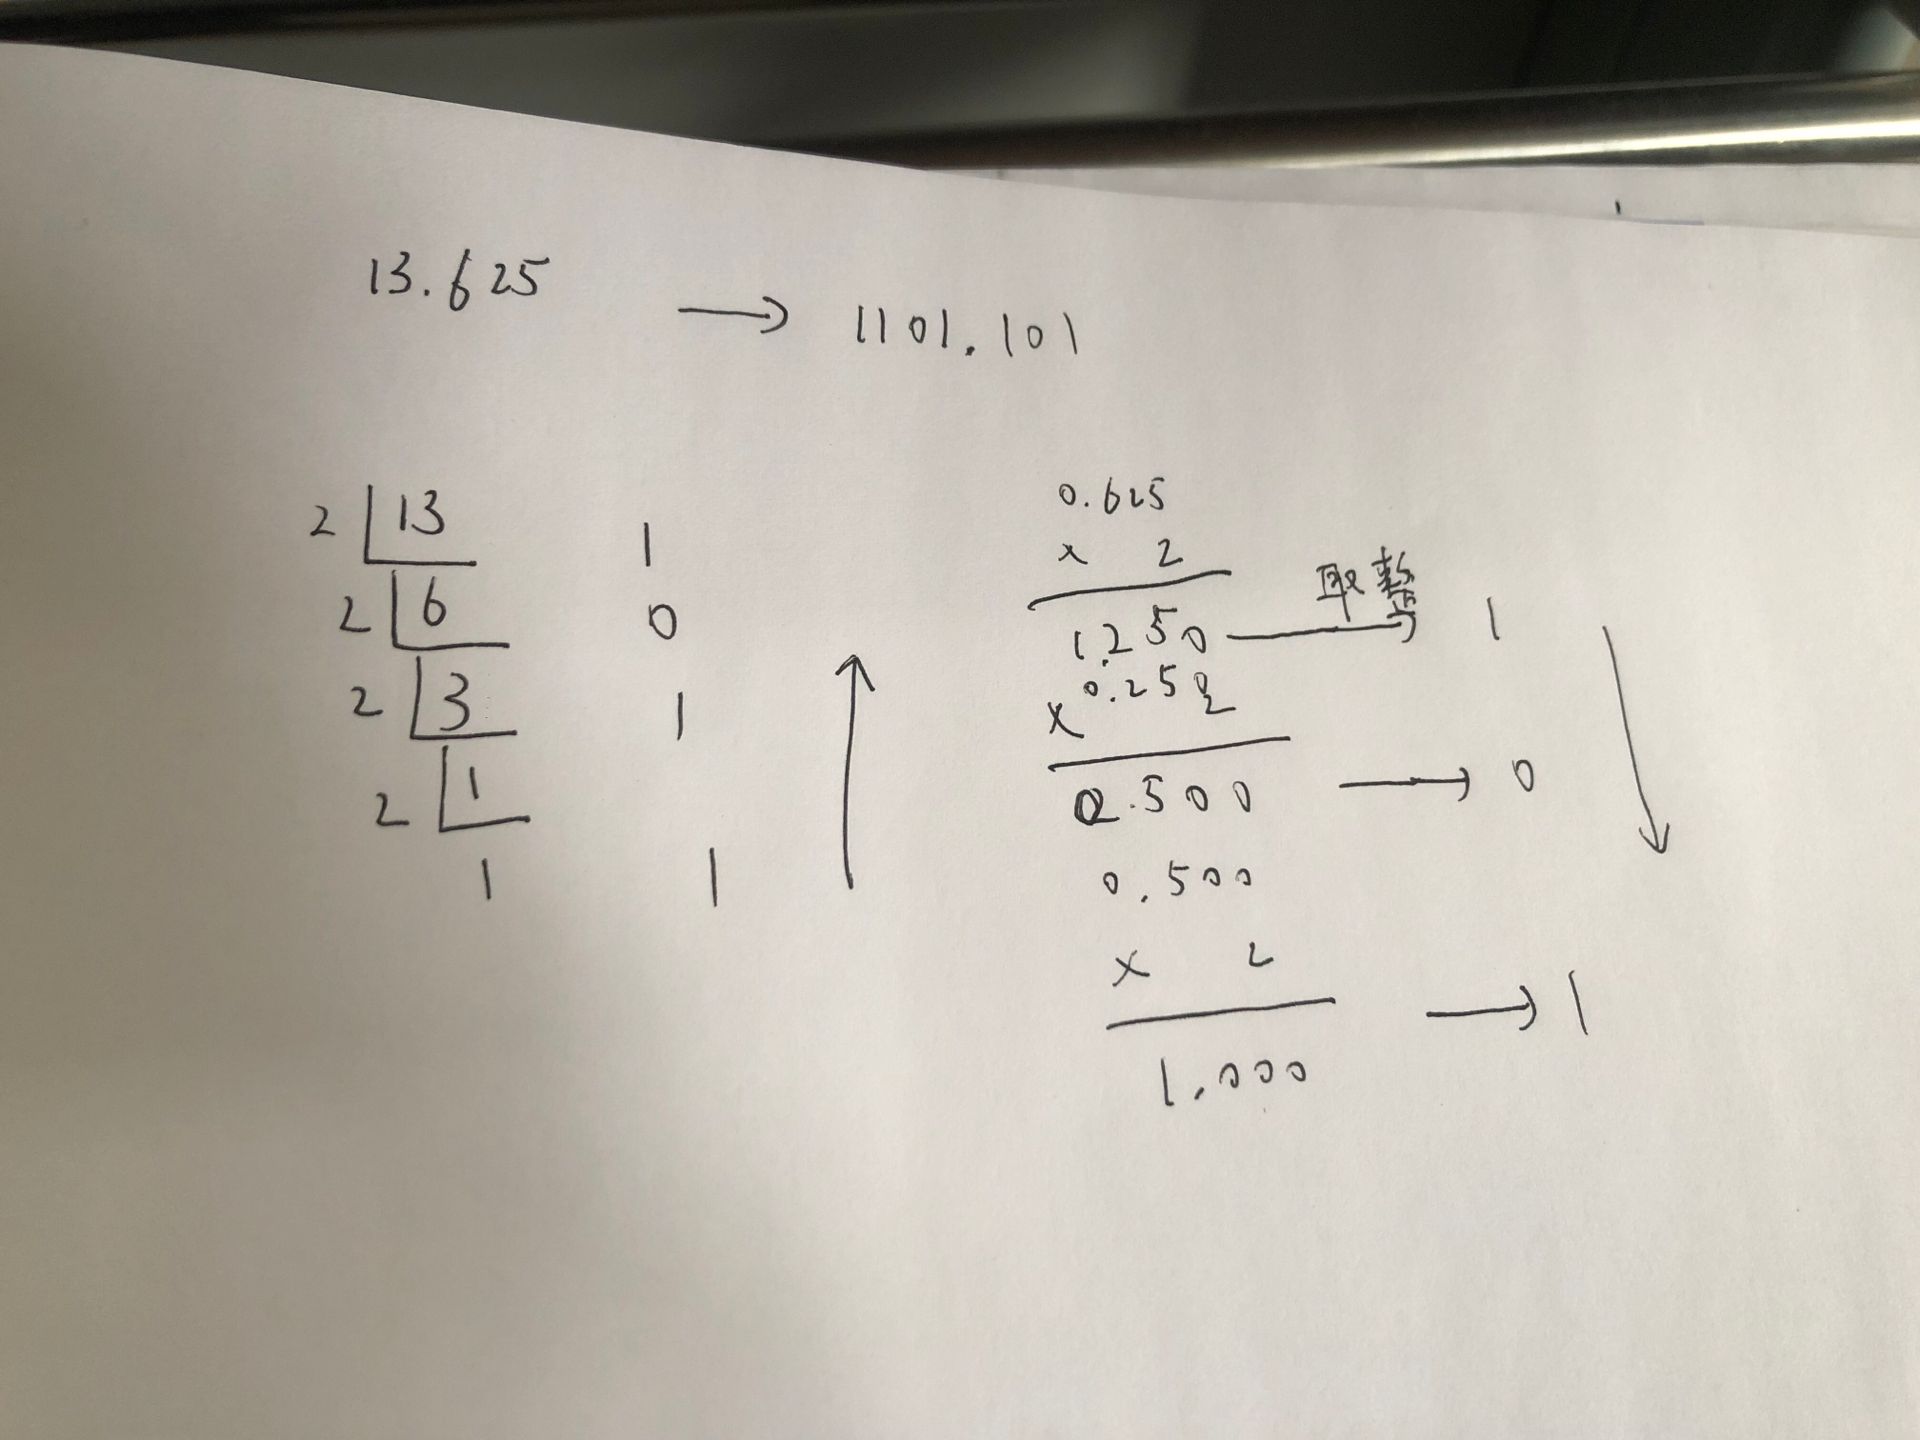 13.625 → 1101.101
2 13 1
2 6 0
2 3 1
2 1
1 1
0.625
× 2
1.250 取整 → 1
0.250
× 2
0.500 → 0
0.500
× 2
1.000 → 1